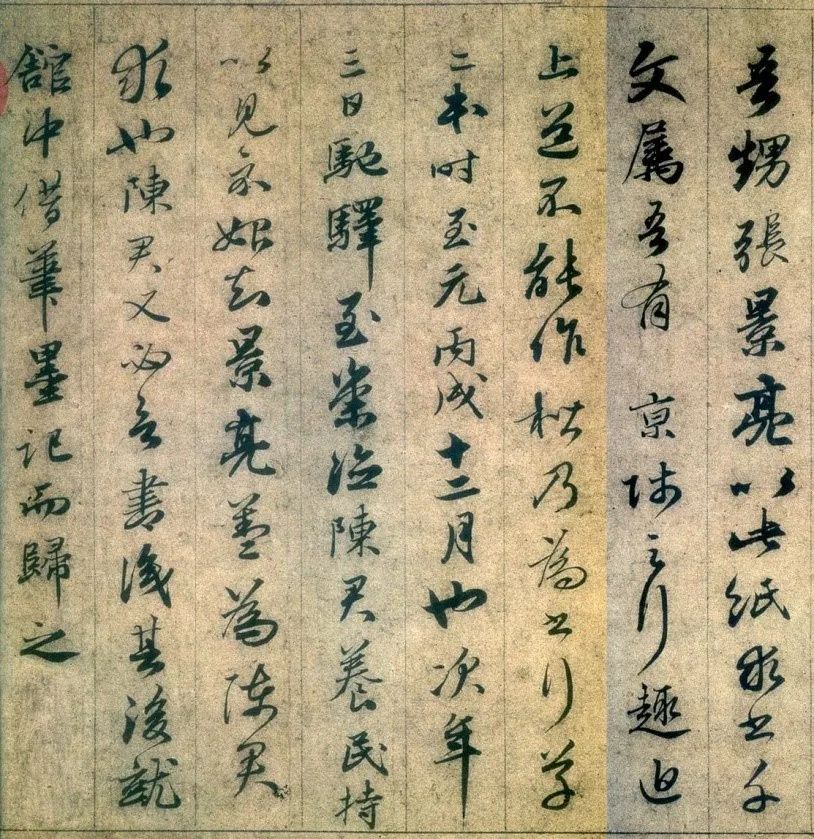 吾甥張景亮以此紙求書千
文屬吾有京師之行趣迫
上道不能作楷乃為書行草
二本時至元丙戌十二月也次年
三日馳驛至陳君養民持
以見示始知景亮蓋為陳君
求也陳君又必吾書識其後就
館中借筆墨記而歸之